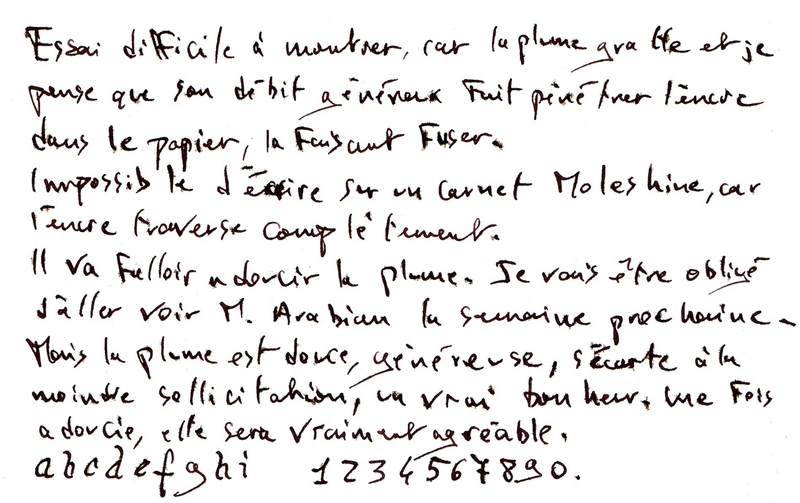 Essai difficile à montrer, car la plume gratte et je
pense que son débit généreux fait pénétrer l'encre
dans le papier, la faisant fuser.
Impossible d'écrire sur un carnet Moleskine, car
l'encre traverse complètement.
Il va falloir adoucir la plume. Je vais être obligé
d'aller voir M. Arabian la semaine prochaine.
Mais la plume est douce, généreuse, s'écarte à la
moindre sollicitation, un vrai bonheur. Une fois
adoucie, elle sera vraiment agréable.
abcdefghi 1234567890.